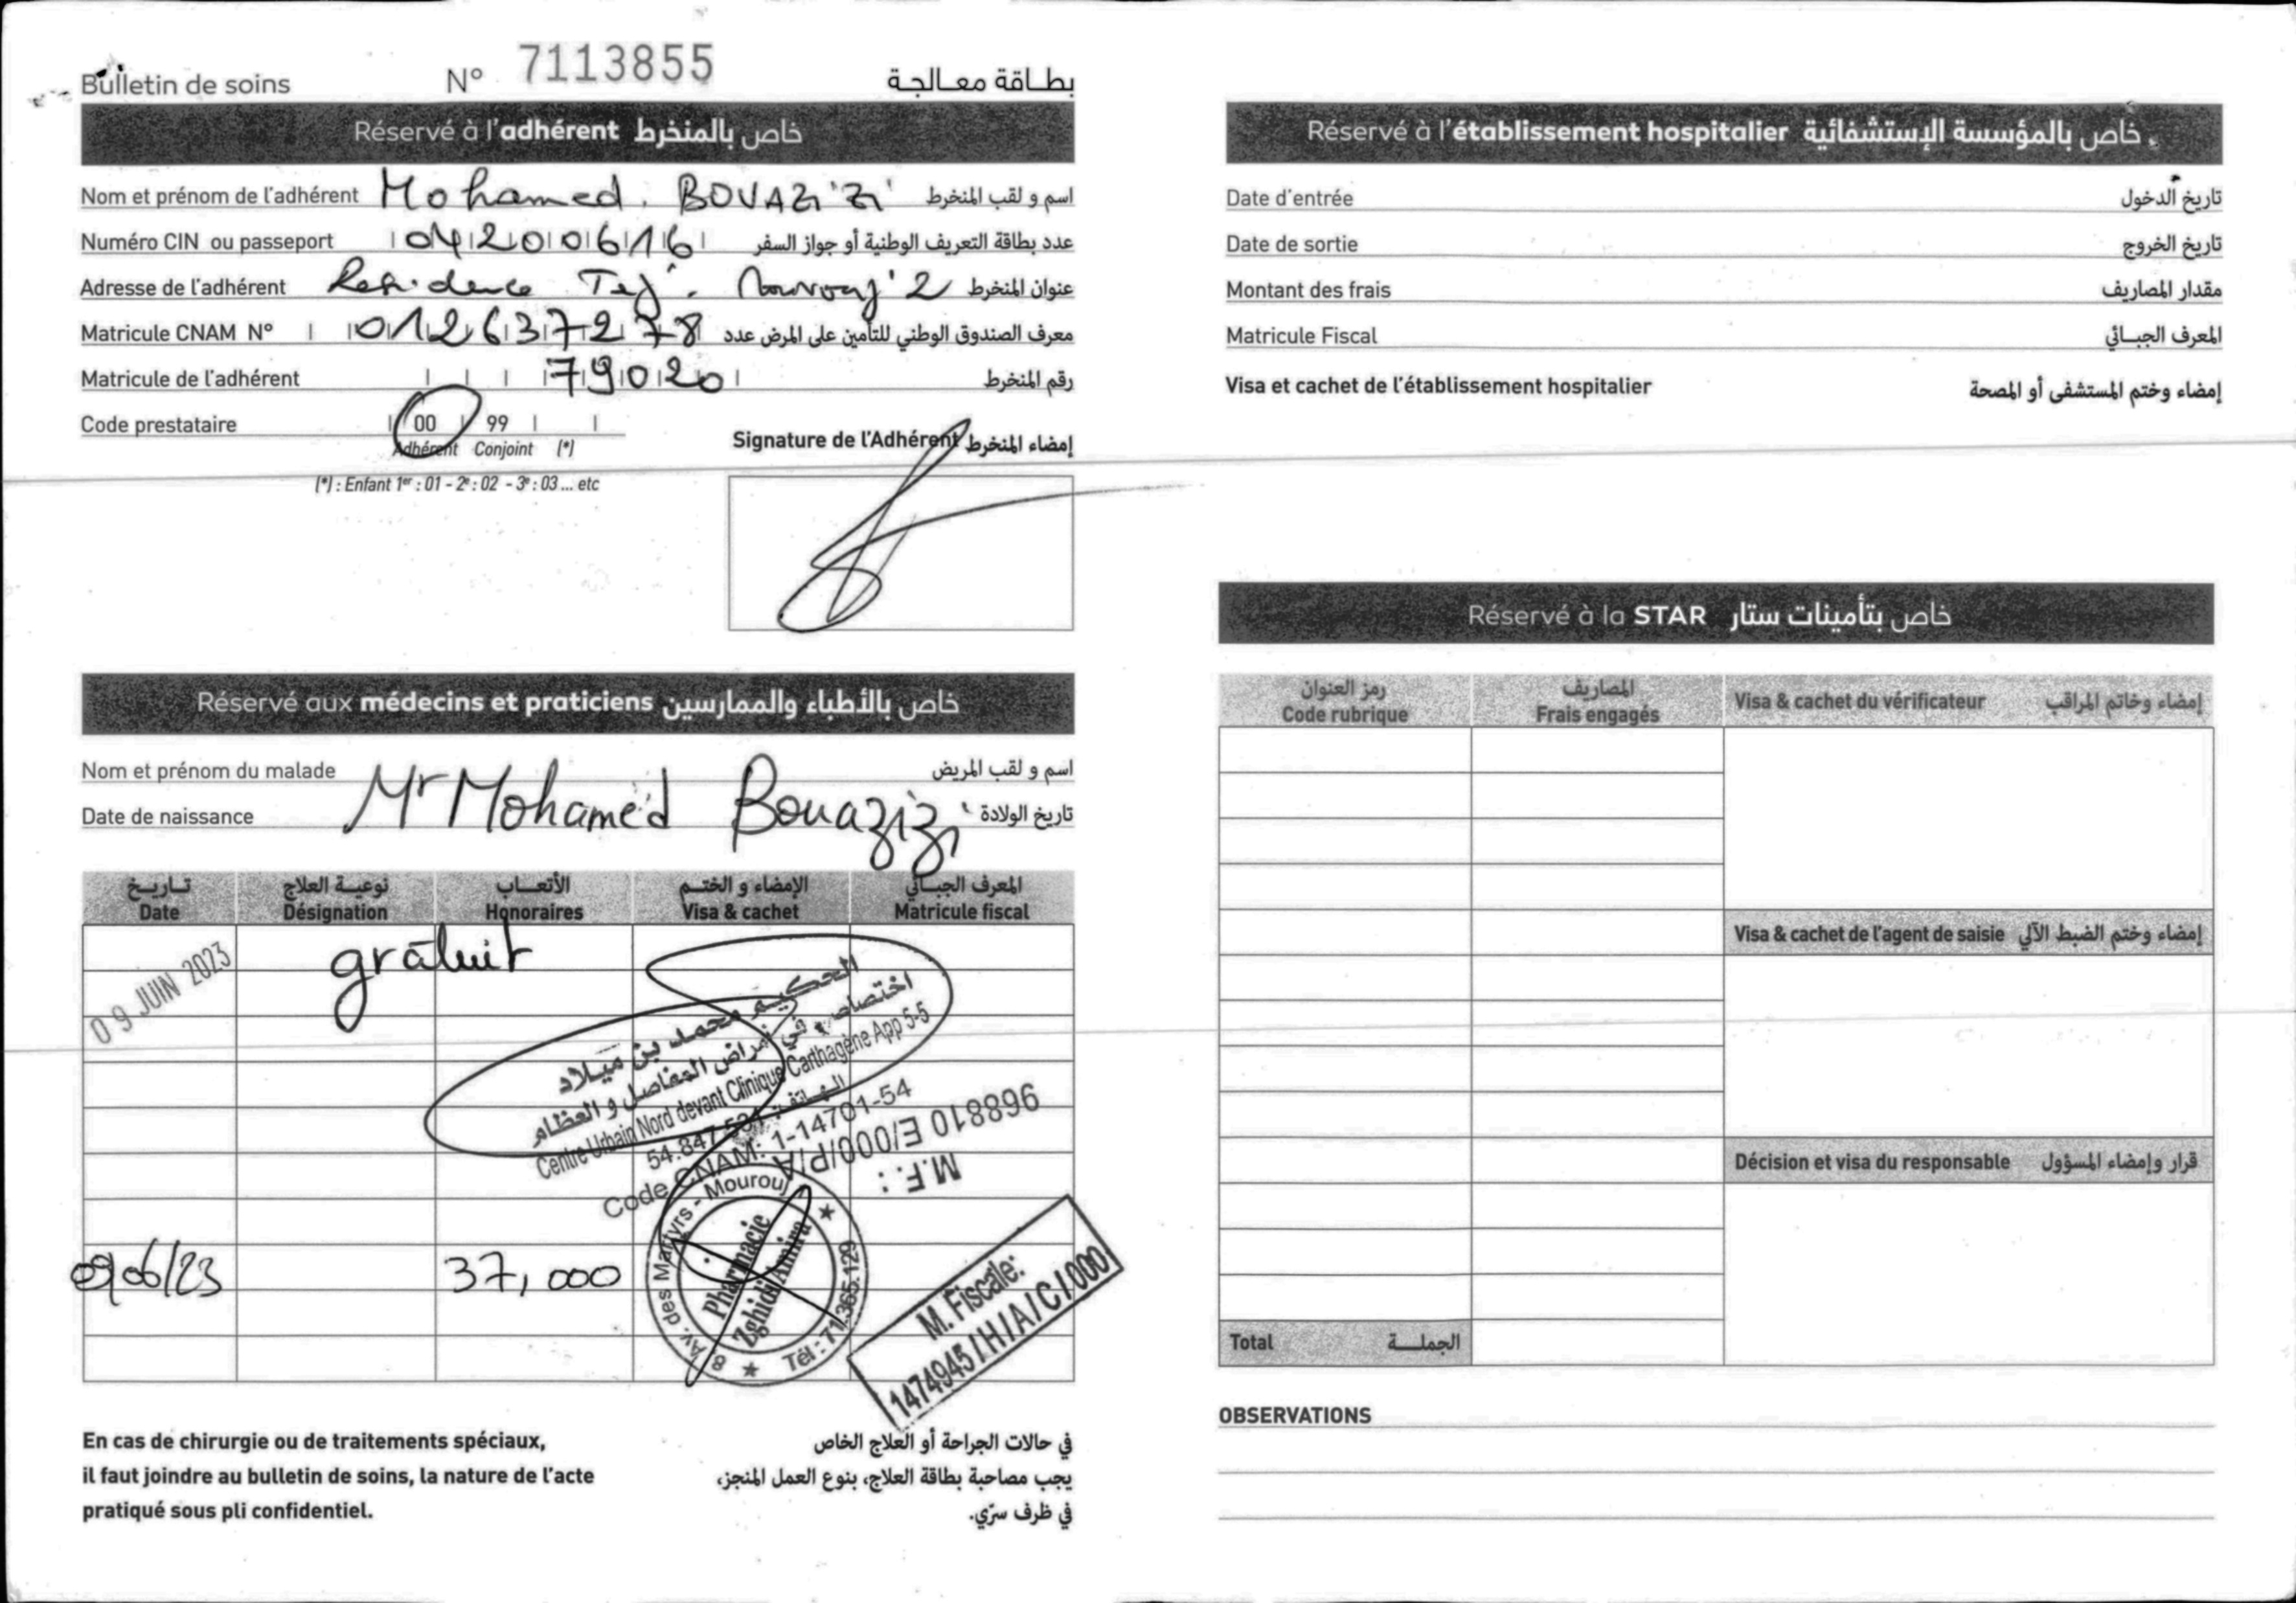 Bulletin de soins N° 7113855 بطاقة معالجة
Réservé à l'adhérent خاص بالمنخرط
Nom et prénom de l'adhérent Mohamed. BOUAZIZI اسم و لقب المنخرط
Numéro CIN ou passeport 04200616 عدد بطاقة التعريف الوطنية أو جواز السفر
Adresse de l'adhérent Residence Tej. Mourouj 2 عنوان المنخرط
Matricule CNAM N° 0126372778 معرف الصندوق الوطني للتأمين على المرض عدد
Matricule de l'adhérent 79020 رقم المنخرط
Code prestataire 00 99
Adhérent Conjoint (*)
(*) : Enfant 1er : 01 - 2e : 02 - 3e : 03 ... etc
Signature de l'Adhérent إمضاء المنخرط
Réservé aux médecins et praticiens خاص بالأطباء والممارسين
Nom et prénom du malade اسم و لقب المريض
Mr Mohamed Bouazizi
Date de naissance تاريخ الولادة
تاريخ نوعية العلاج الأتعاب الإمضاء و الختم المعرف الجبائي
Date Désignation Honoraires Visa & cachet Matricule fiscal
09 JUIN 2023 gratuit
الحكيم محمد بن ميلاد
اختصاصي في أمراض المفاصل و العظام
Centre Urbain Nord devant Clinique Carthagène App 5-5
الهاتف: 54.847
Code CNAM: 1-14701-54
M.F. : 968810 E/000/P/A
09/06/23 37,000
8 Av. des Martyrs - Mourouj
Pharmacie
Zghidi Amira
Tél : 71.365.129
M. Fiscale:
1474945/H/A/C/000
En cas de chirurgie ou de traitements spéciaux,
il faut joindre au bulletin de soins, la nature de l'acte
pratiqué sous pli confidentiel.
في حالات الجراحة أو العلاج الخاص
يجب مصاحبة بطاقة العلاج، بنوع العمل المنجز،
في ظرف سرّي.
Réservé à l'établissement hospitalier خاص بالمؤسسة الإستشفائية
Date d'entrée تاريخ الدخول
Date de sortie تاريخ الخروج
Montant des frais مقدار المصاريف
Matricule Fiscal المعرف الجبائي
Visa et cachet de l'établissement hospitalier إمضاء وختم المستشفى أو المصحة
Réservé à la STAR خاص بتأمينات ستار
رمز العنوان المصاريف
Code rubrique Frais engagés Visa & cachet du vérificateur إمضاء وخاتم المراقب
Visa & cachet de l'agent de saisie إمضاء وختم الضبط الآلي
Décision et visa du responsable قرار وإمضاء المسؤول
Total الجملة
OBSERVATIONS